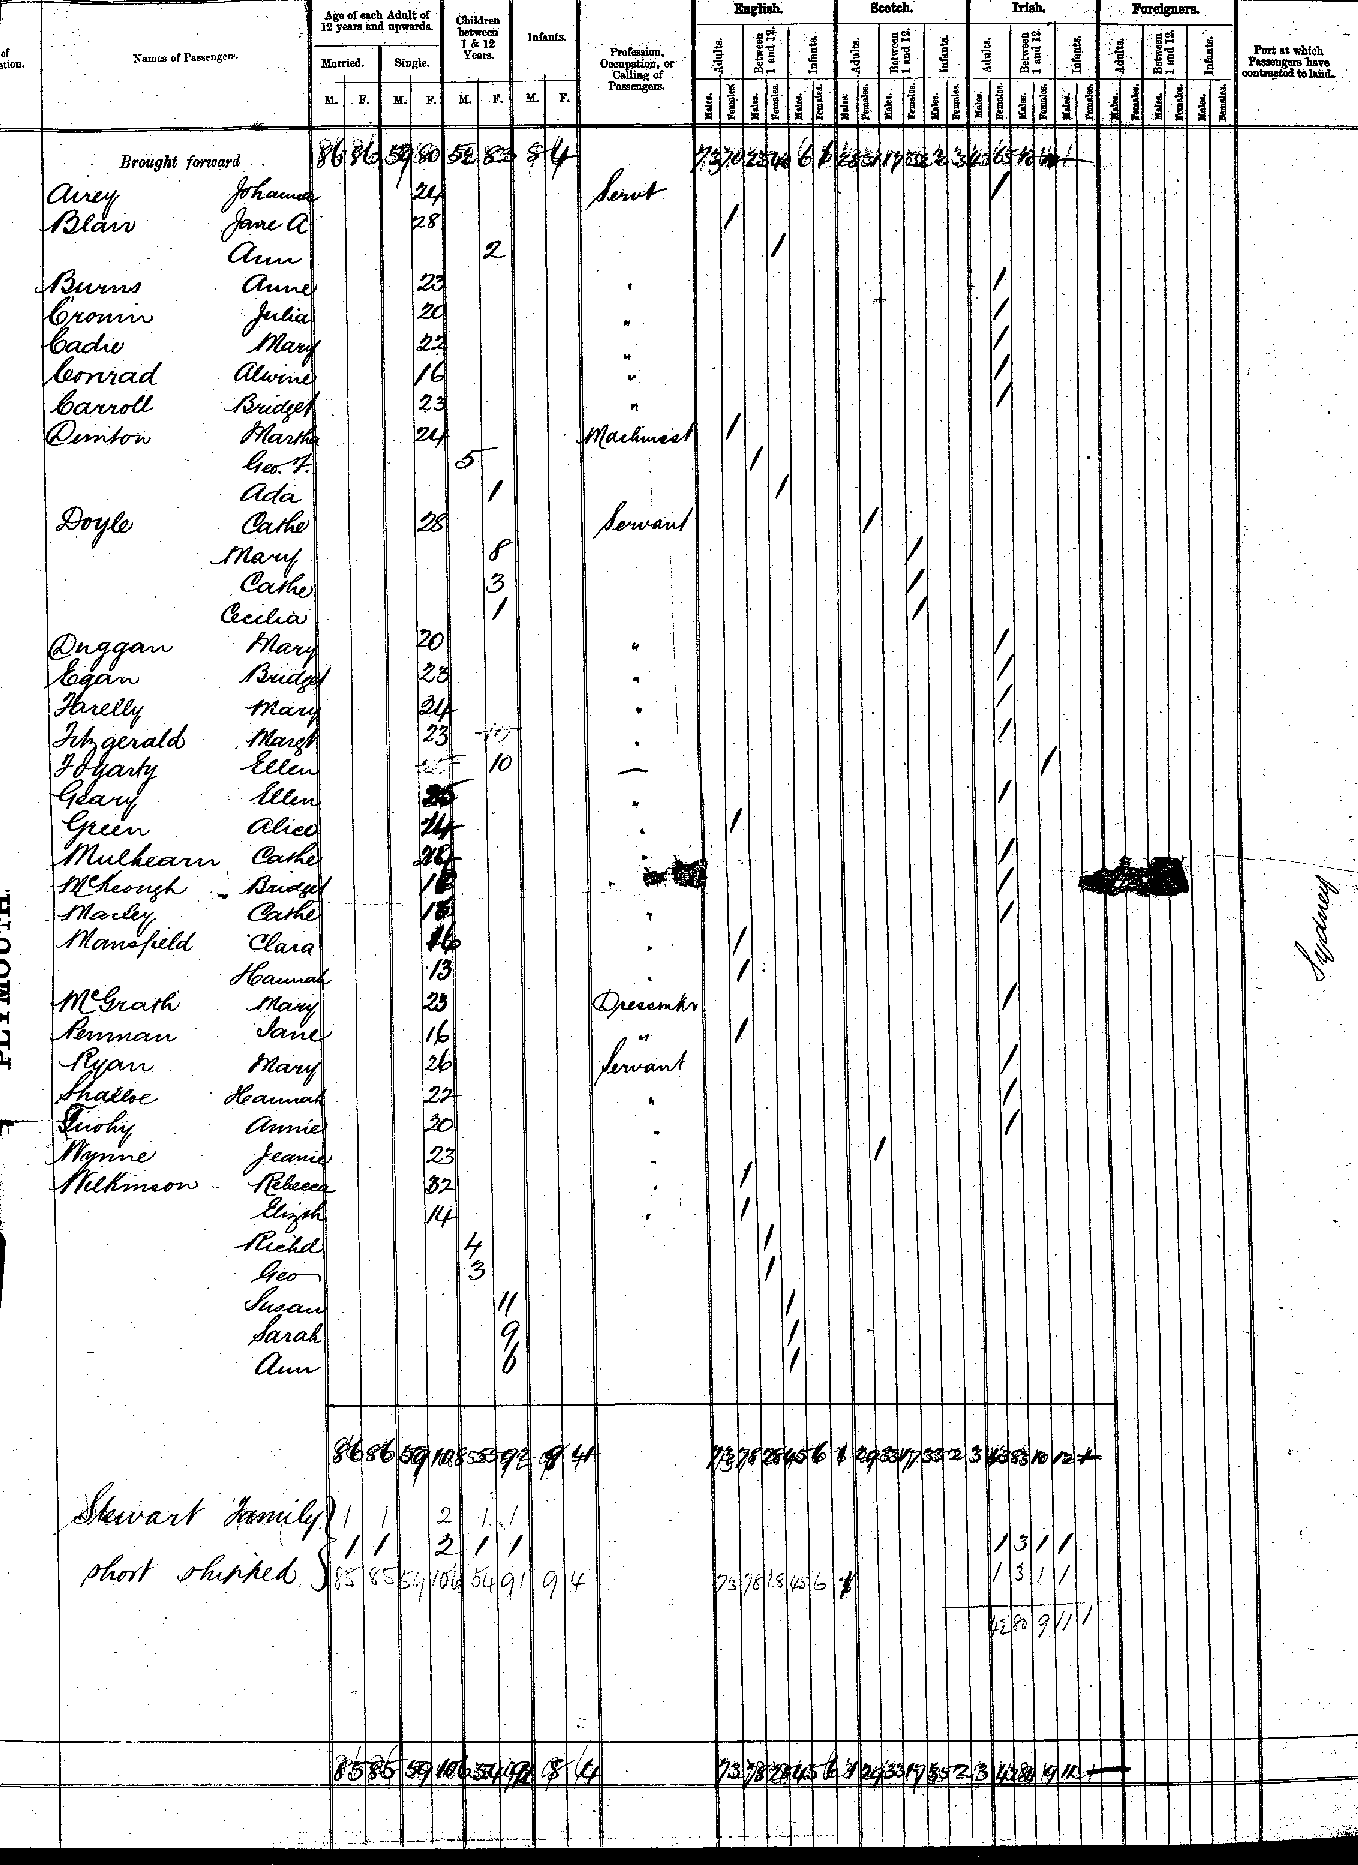 English. Scotch. Irish. Foreigners.
Age of each Adult of 12 years and upwards. Children between 1 & 12 Years. Infants.
Names of Passengers. Married. Single. Profession, Occupation, or Calling of Passengers. Adults. Between 1 and 12. Infants. Adults. Between 1 and 12. Infants. Adults. Between 1 and 12. Infants. Adults. Between 1 and 12. Infants. Port at which Passengers have contracted to land.
M. F. M. F. M. F. M. F. Males. Females. Males. Females. Males. Females. Males. Females. Males. Females. Males. Females. Males. Females. Males. Females. Males. Females. Males. Females. Males. Females. Males. Females.
Brought forward 86 86 59 80 52 83 4
Airey Johanna 24 Servt 1
Blair Jane A 28 1
Ann 2 1
Burns Anne 23 " 1
Cronin Julia 20 " 1
Cadie Mary 22 " 1
Conrad Alwine 16 " 1
Carroll Bridget 23 " 1
Denton Martha 24 Machinist 1
Geo. F. 5 1
Ada 1 1
Doyle Cathe 28 Servant 1
Mary 8 1
Cathe 3 1
Cecilia 1 1
Duggan Mary 20 " 1
Egan Bridget 23 " 1
Farelly Mary 24 " 1
Fitzgerald Margt 23 " 1
Fogarty Ellen 10 — 1
Geary Ellen 25 " 1
Green Alice 24 " 1
Mulhearn Cathe 1
McKeough Bridget 1
Marley Cathe 18 " 1
Mansfield Clara 16 " 1
Hannah 13 " 1
McGrath Mary 23 Dressmkr 1
Penman Jane 16 " 1
Ryan Mary 26 Servant 1
Shalloe Hannah 22 " 1
Tuohy Annie 20 " 1
Wynne Jeanie 23 " 1
Wilkinson Rebecca 32 " 1
Elizth 14 " 1
Richd 4 1
Geo 3 1
Susan 11 1
Sarah 9 1
Ann 6 1
Sydney
PLYMOUTH
86 86 59 108 55 92 4 73 78 28 45 6 1 29 33 17 33 2 3 83 10 12
Stewart Family 1 1 2 1 1
1 1 2 1 1 1 3 1 1
short shipped 85 85 59 106 54 91 9 4 73 78 28 45 6 1 3 1 1
42 80 9 11 1
85 85 59 106 54 4 73 78 28 45 29 33 17 2 3 42 80 9 11